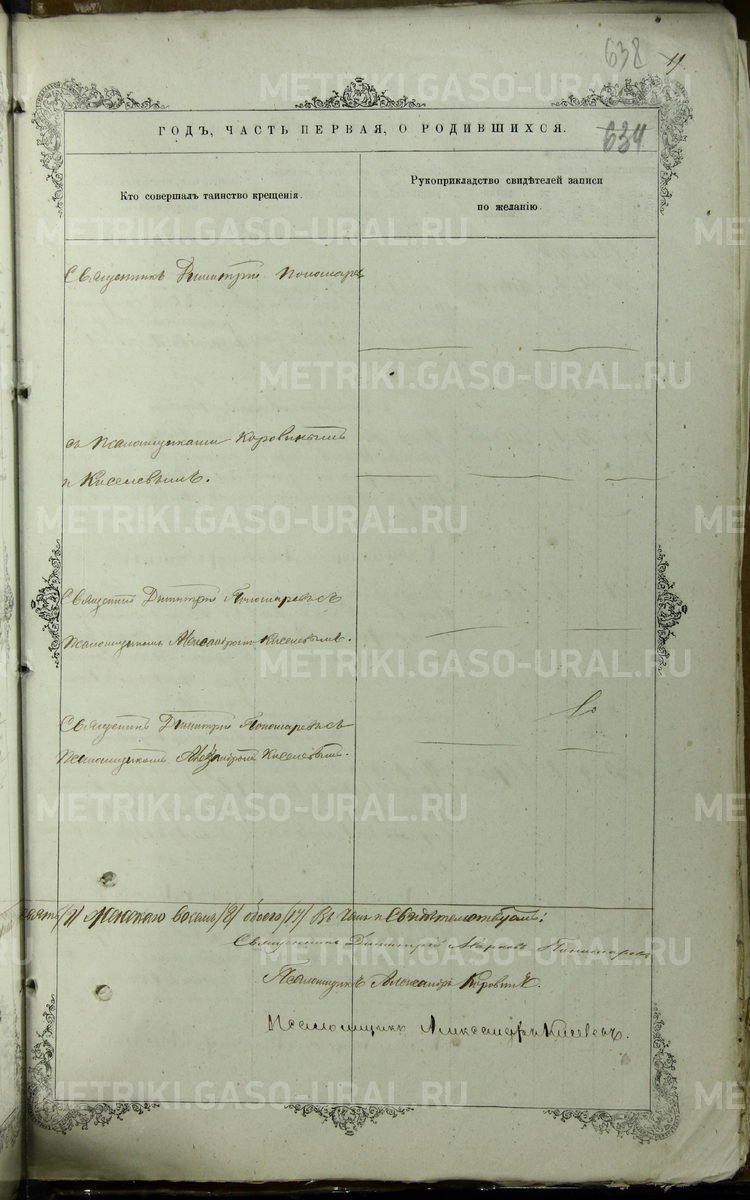 638
11
ГОДЪ, ЧАСТЬ ПЕРВАЯ, О РОДИВШИХСЯ.
634
Кто совершалъ таинство крещенія.
Рукоприкладство свидѣтелей записи
по желанію.
Священникъ Димитрій Пономаре
съ псаломщиками Коровинымъ
и Киселевымъ.
Священник Димитрій Пономаревъ съ
псаломщикомъ Александромъ Киселевымъ.
Священникъ Димитрій Пономаревъ съ
псаломщикомъ Александромъ Киселевымъ.
/9/ женскаго восемь /8/ обоего /17/ Въ чемъ и свидѣтельствуемъ:
Священникъ Димитрій Пономаревъ
Псаломщикъ Александръ Коровинъ.
Псаломщикъ Александръ Киселевъ.
METRIKI.GASO-URAL.RU